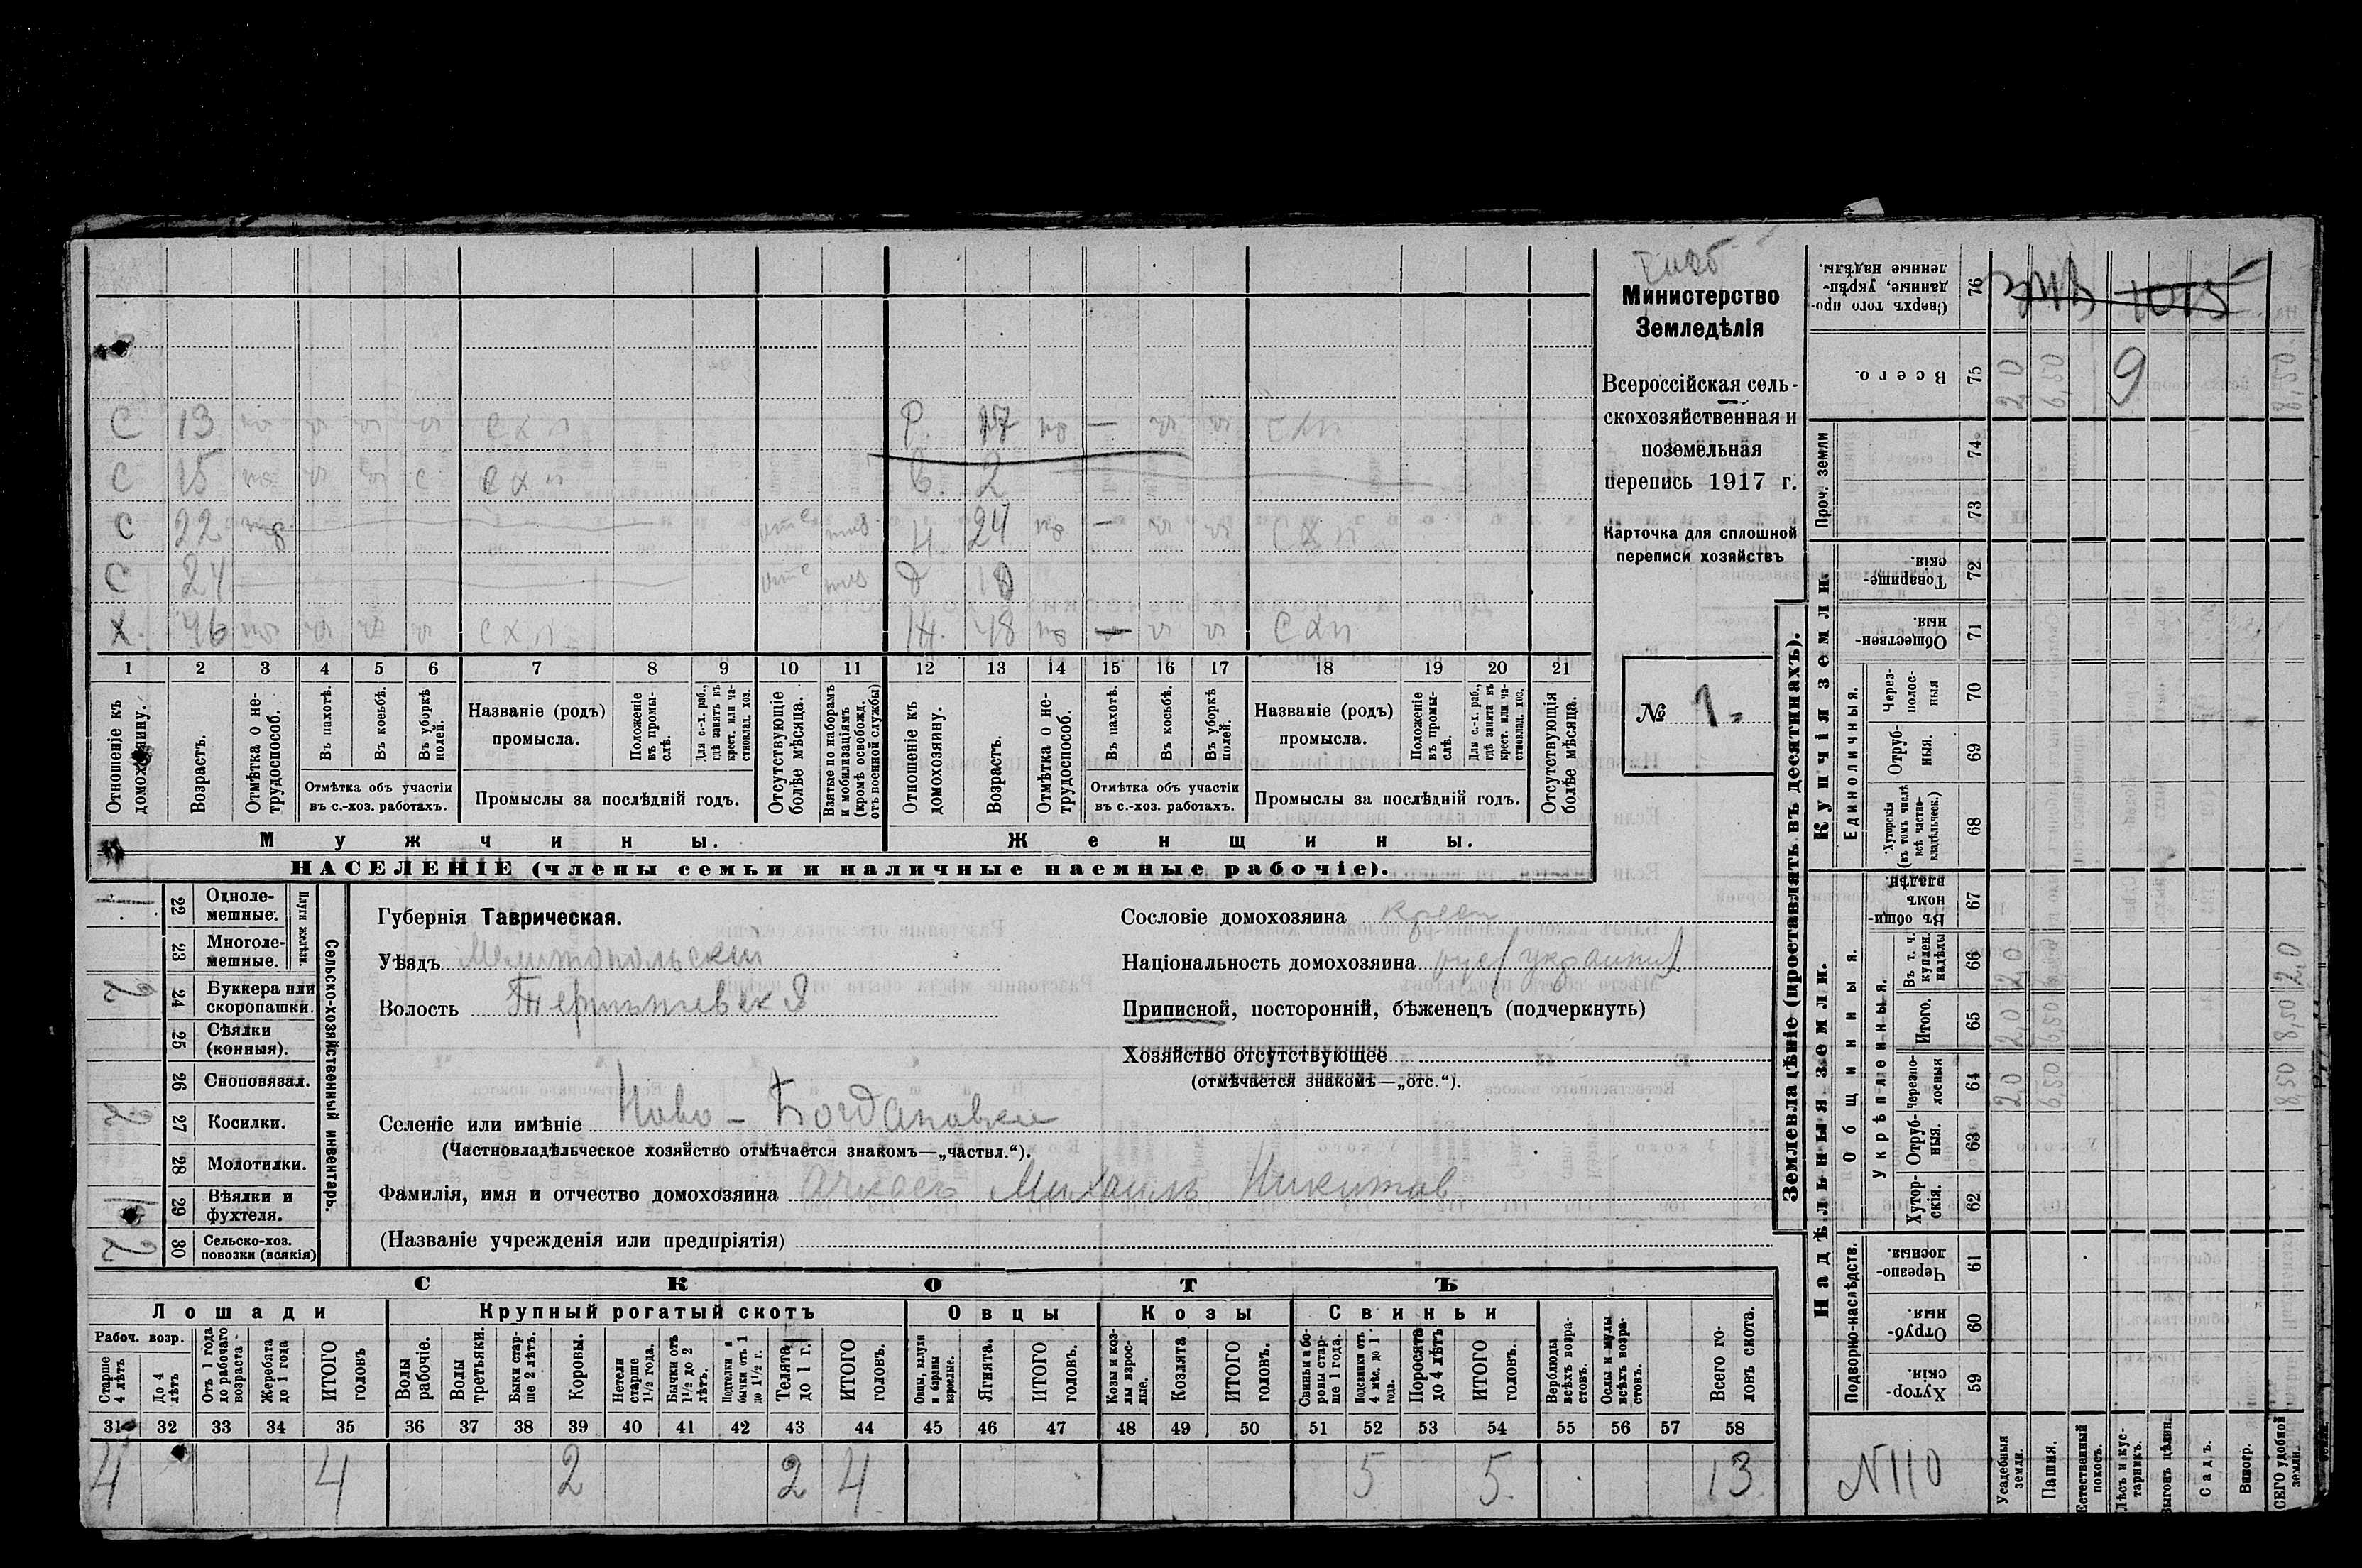 Министерство
Земледѣлія
Всероссійская сель-
скохозяйственная и
поземельная
перепись 1917 г.
Карточка для сплошной
переписи хозяйствъ
№ 1.
С 13 СХП Р. 17 — СХП
С 15 С СХП 2
С 22 24 — СХП
С 24 18
Х. 46 СХП Ж. 48 СХП
1 2 3 4 5 6 7 8 9 10 11 12 13 14 15 16 17 18 19 20 21
Отношеніе къ домохозяину.
Возрастъ.
Отмѣтка о не-трудоспособ.
Въ пахотѣ.
Въ косьбѣ.
Въ уборкѣ полей.
Отмѣтка объ участіи
въ с.-хоз. работахъ.
Названіе (родъ)
промысла.
Положеніе въ промы-слѣ.
Для с.-х. раб., гдѣ занятъ въ крест. или ча-стновлад. хоз.
Промыслы за послѣдній годъ.
Отсутствующіе болѣе мѣсяца.
Взятые по наборамъ и мобилизаціямъ (кромѣ освобожд. отъ военной службы)
Отношеніе къ домохозяину.
Возрастъ.
Отмѣтка о не-трудоспособ.
Въ пахотѣ.
Въ косьбѣ.
Въ уборкѣ полей.
Отмѣтка объ участіи
въ с.-хоз. работахъ.
Названіе (родъ)
промысла.
Положеніе въ промы-слѣ.
Для с.-х. раб., гдѣ занята въ крест. или ча-стновлад. хоз.
Промыслы за послѣдній годъ.
Отсутствующія болѣе мѣсяца.
Мужчины. Женщины.
НАСЕЛЕНІЕ (члены семьи и наличные наемные рабочіе).
Сельско-хозяйственный инвентарь.
Плуги желѣзн.
22 Одноле-мешные. 1
23 Многоле-мешные.
24 Буккера или скоропашки. 2
25 Сѣялки (конныя).
26 Сноповязал.
27 Косилки. 2
28 Молотилки.
29 Вѣялки и фухтеля. 1
30 Сельско-хоз. повозки (всякія) 2
Губернія Таврическая.
Уѣздъ Мелитопольскій
Волость
Сословіе домохозяина крест
Національность домохозяина рус (украинц)
Приписной, посторонній, бѣженецъ (подчеркнуть)
Хозяйство отсутствующее
(отмѣчается знакомъ—„отс.“).
Селеніе или имѣніе Ново-Богдановка
(Частновладѣльческое хозяйство отмѣчается знакомъ—„частвл.“).
Фамилія, имя и отчество домохозяина Михаилъ Никитов
(Названіе учрежденія или предпріятія)
СКОТЪ
Лошади Крупный рогатый скотъ Овцы Козы Свиньи
Рабоч. возр.
Старше 4 лѣтъ
До 4 лѣтъ
Отъ 1 года до рабочаго возраста
Жеребята до 1 года
ИТОГО головъ
Волы рабочіе.
Волы третьяки.
Быки стар-ше 2 лѣтъ.
Коровы.
Нетели старше 1½ года.
Бычки отъ 1½ до 2 лѣтъ.
Подтелки и бычки отъ 1 до 1½ г.
Телята до 1 г.
ИТОГО головъ.
Овцы, валухи и бараны взрослые.
Ягнята.
ИТОГО головъ.
Козы и коз-лы взрос-лые.
Козлята
ИТОГО головъ.
Свиньи и бо-ровы стар-ше 1 года.
Подсвинки отъ 4 мѣс. до 1 года.
Поросята до 4 лѣтъ
ИТОГО головъ.
Верблюды всѣхъ возра-стовъ.
Ослы и мулы всѣхъ возра-стовъ.
Всего го-ловъ скота.
31 32 33 34 35 36 37 38 39 40 41 42 43 44 45 46 47 48 49 50 51 52 53 54 55 56 57 58
4 4 2 2 4 5 5. 13
Землевладѣніе (проставлять въ десятинахъ).
76 Сверхъ того про-данные, укрѣп-ленные надѣлы.
75 Всего. 2,0 6,50 9 8,50
Купчія земли
Проч. земли
74
73
72 Товарище-скія.
71 Обществен-ныя.
Единоличныя.
70 Через-полос-ныя
69 Отруб-ныя.
68 Хуторскія (въ томъ числѣ всѣ частно-владѣльческ.)
Надѣльныя земли.
Общинныя.
67 Въ общи-номъ владѣн.
Укрѣпленныя.
66 Въ т. ч. куплен. надѣлы 2,0 2,0
65 Итого. 2,0 6,50 8,50
64 Черезпо-лосныя 2,0 6,50 8,50
63 Отруб-ныя.
62 Хутор-скія.
Подворно-наслѣдств.
61 Черезпо-лосныя.
60 Отруб-ныя.
59 Хутор-скія.
N 110
Усадебныя земли.
Пашня.
Естественный покосъ.
Лѣсъ и кус-тарникъ.
Выгонъ цѣлин.
Садъ.
Виногр.
ВСЕГО удобной земли.